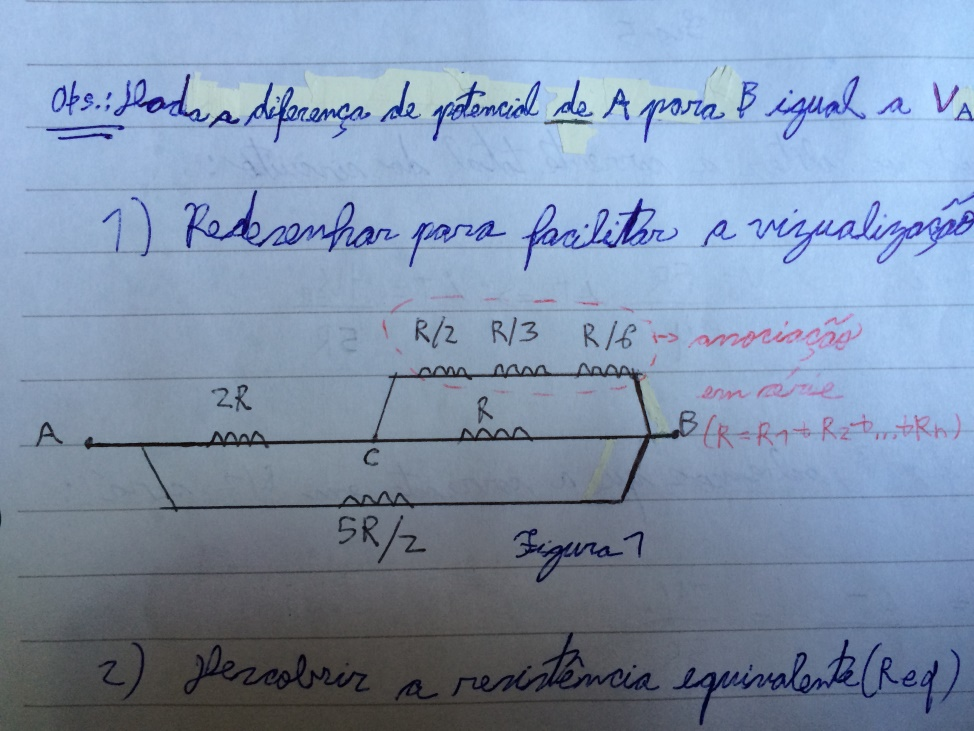 Obs.: Dada a diferença de potencial de A para B igual a VA
1) Redesenhar para facilitar a vizualização
R/2 R/3 R/6 → associação
em série
(R=R1+R2+...+Rn)
2R
R
A
B
C
5R/2
Figura 1
2) Descobrir a resistência equivalente (Req)